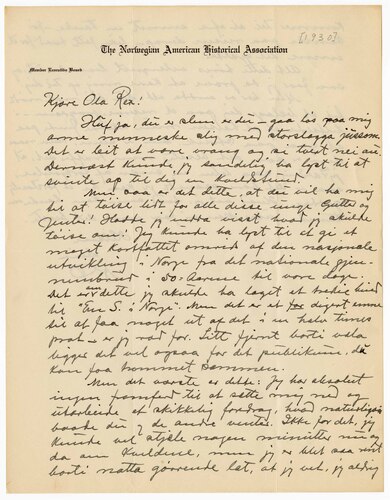 [1930]
The Norwegian American Historical Association
Member Executive Board
Kjære Ola Rea:
Huf ja, du er slem er du – gaa løs paa mig
arme menneske slig med storslægga jussom
Det er leit at være vrang og si tvert nei au.
Dernæst kunde jeg saandelig ha lyst til at
svinte op til dig en kveldstund
Men saa er det dette, at du vil ha mig
til at tøise lidt for alle disse unge Gutter og
Jenter! Hadde jeg endda visst hvad jeg skulde
tøise om! Jeg kunde ha lyst til at gi et
meget kortfattet omrids af den nasjonale
utvikling i Norge fra det nationale gjen-
nembrud i 50-Aarene til vore dage.
Det er om dette jeg skulde ha laget et tredie bind
til "En S. i Norge". Men det er et for digert emne
til at faa noget ut af det i en halv times
prat – er jeg ræd for. Litt fjernt borti
ligger det vel ogsaa for det publikum, du
kan faa trommet sammen.
Men det værste er dette: Jeg har absolut
ingen til at sette mig ned og
utarbeide et skikkelig foredrag, hvad naturligvis
baade du og de andre venter. Ikke for det, jeg
kunde vel stjæle nogen minutter nu og
da om kveldene, men jeg er blet saa rent
borti natta gørrende lat, at jeg vet, jeg aldrig